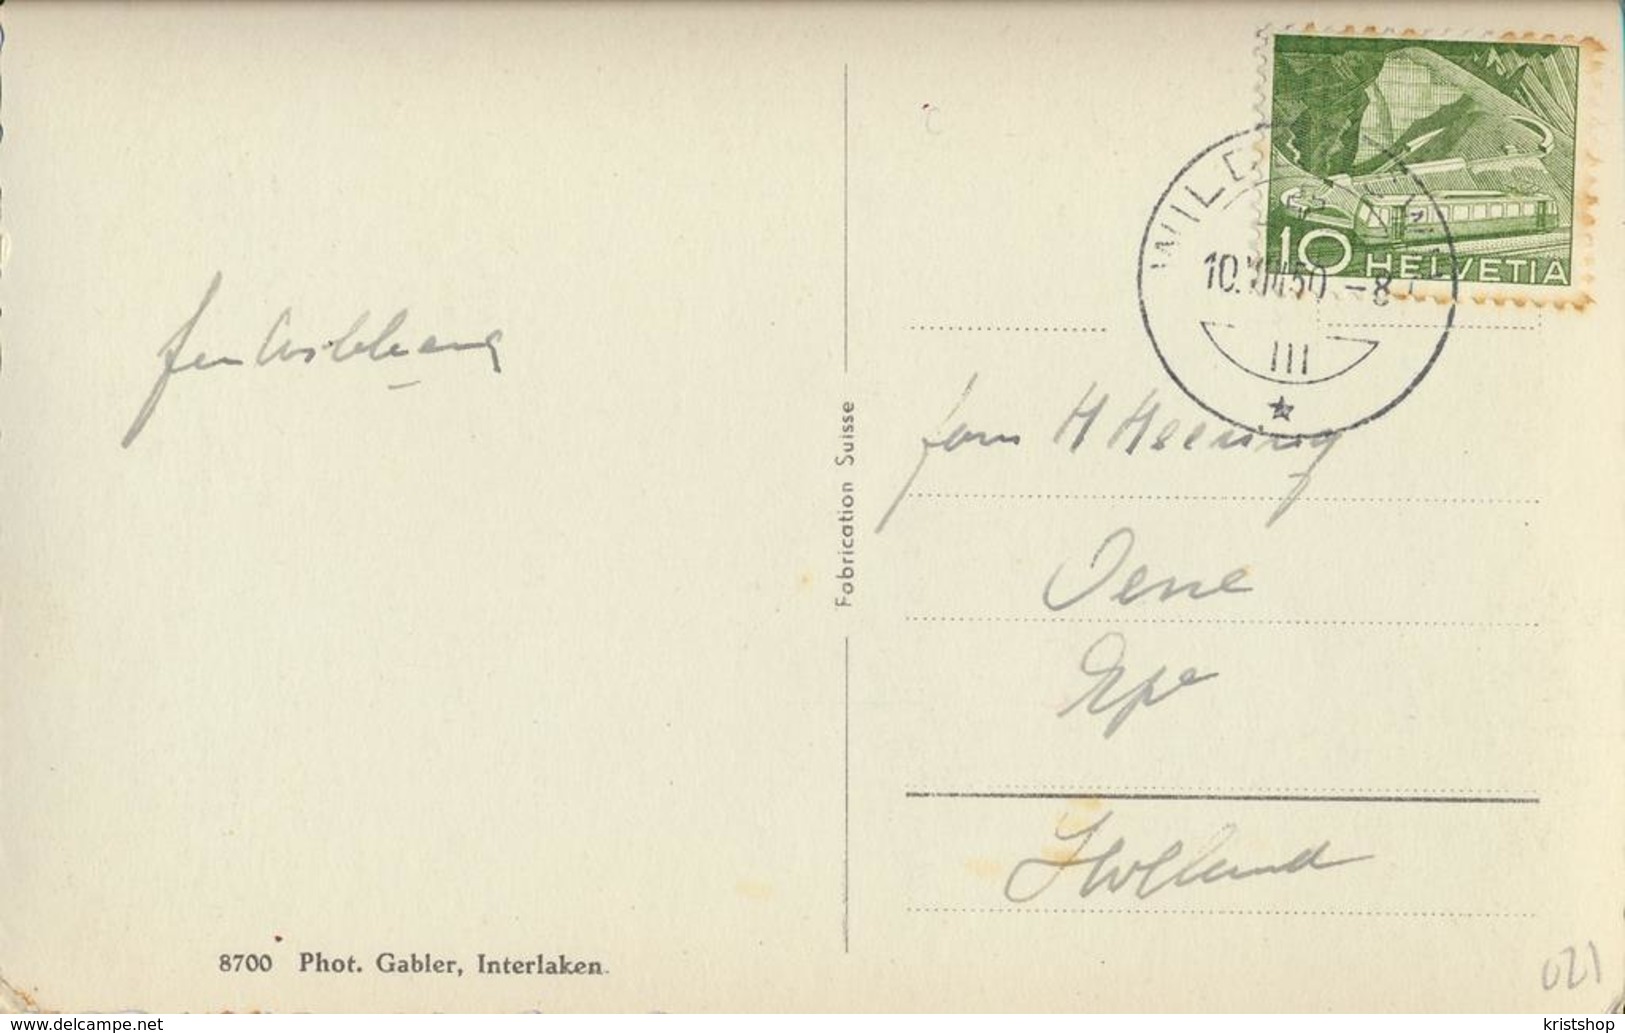 10 HELVETIA
WILD
III
Fabrication Suisse
fam H Heering
Oene
Epe
Holland
8700 Phot. Gabler, Interlaken.
021
www.delcampe.net
kristshop